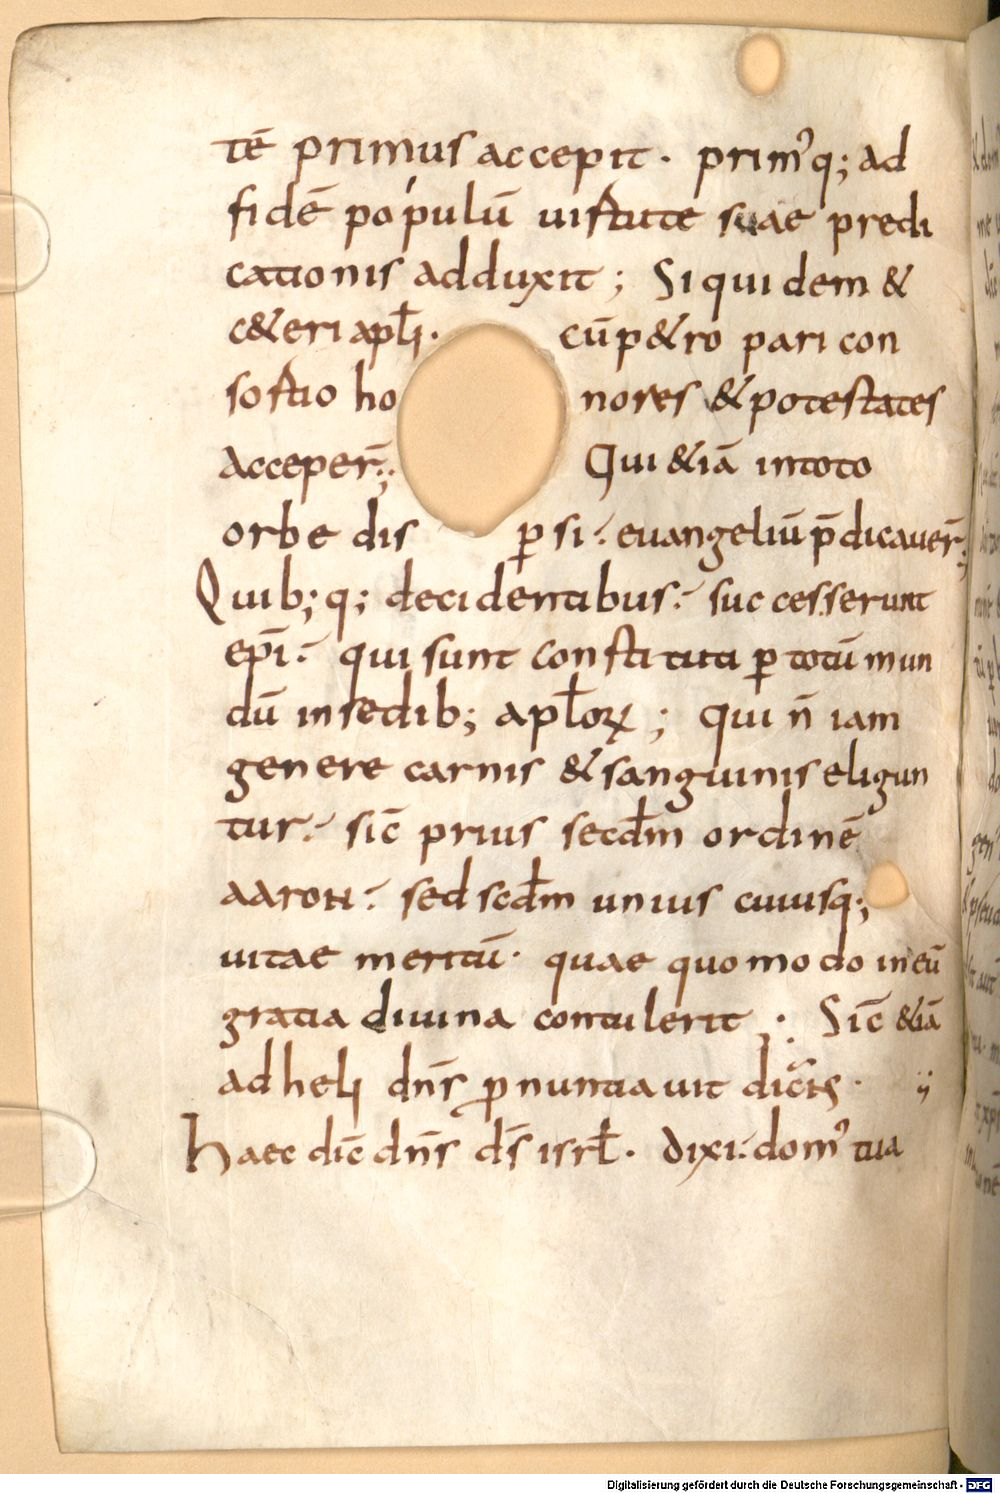 tē primus accepit · prim᾽q; ad
fidē populū uirtute suae predi
cationis adduxit ; Siquidem &
c&eri apłi · cū p&ro pari con
sortio honores & potestates
acceper̄ ; Qui &iā intoto
orbe dis p̄si : euangeliū p̄dicauer̄ ;
Quib; q; decidentibus : successerunt
ep̄i : qui sunt constituti ꝑ totū mun
dū in sedib; apłoꝝ ; qui n̄ iam
genere carnis & sanguinis eligun
tur : sic̄ prius secdm̄ ordinē
aaron : sed scdm̄ unius cuiusq;
uitae meritū · quae quomodo in eū
gratia diuina contulerit ; Sic̄ &iā
ad heli dn̄s ꝓnuntiauit dicēs ·
Haec dic̄ dn̄s ds̄ isrł · dixi : dom᾽ tua
Digitalisierung gefördert durch die Deutsche Forschungsgemeinschaft - DFG